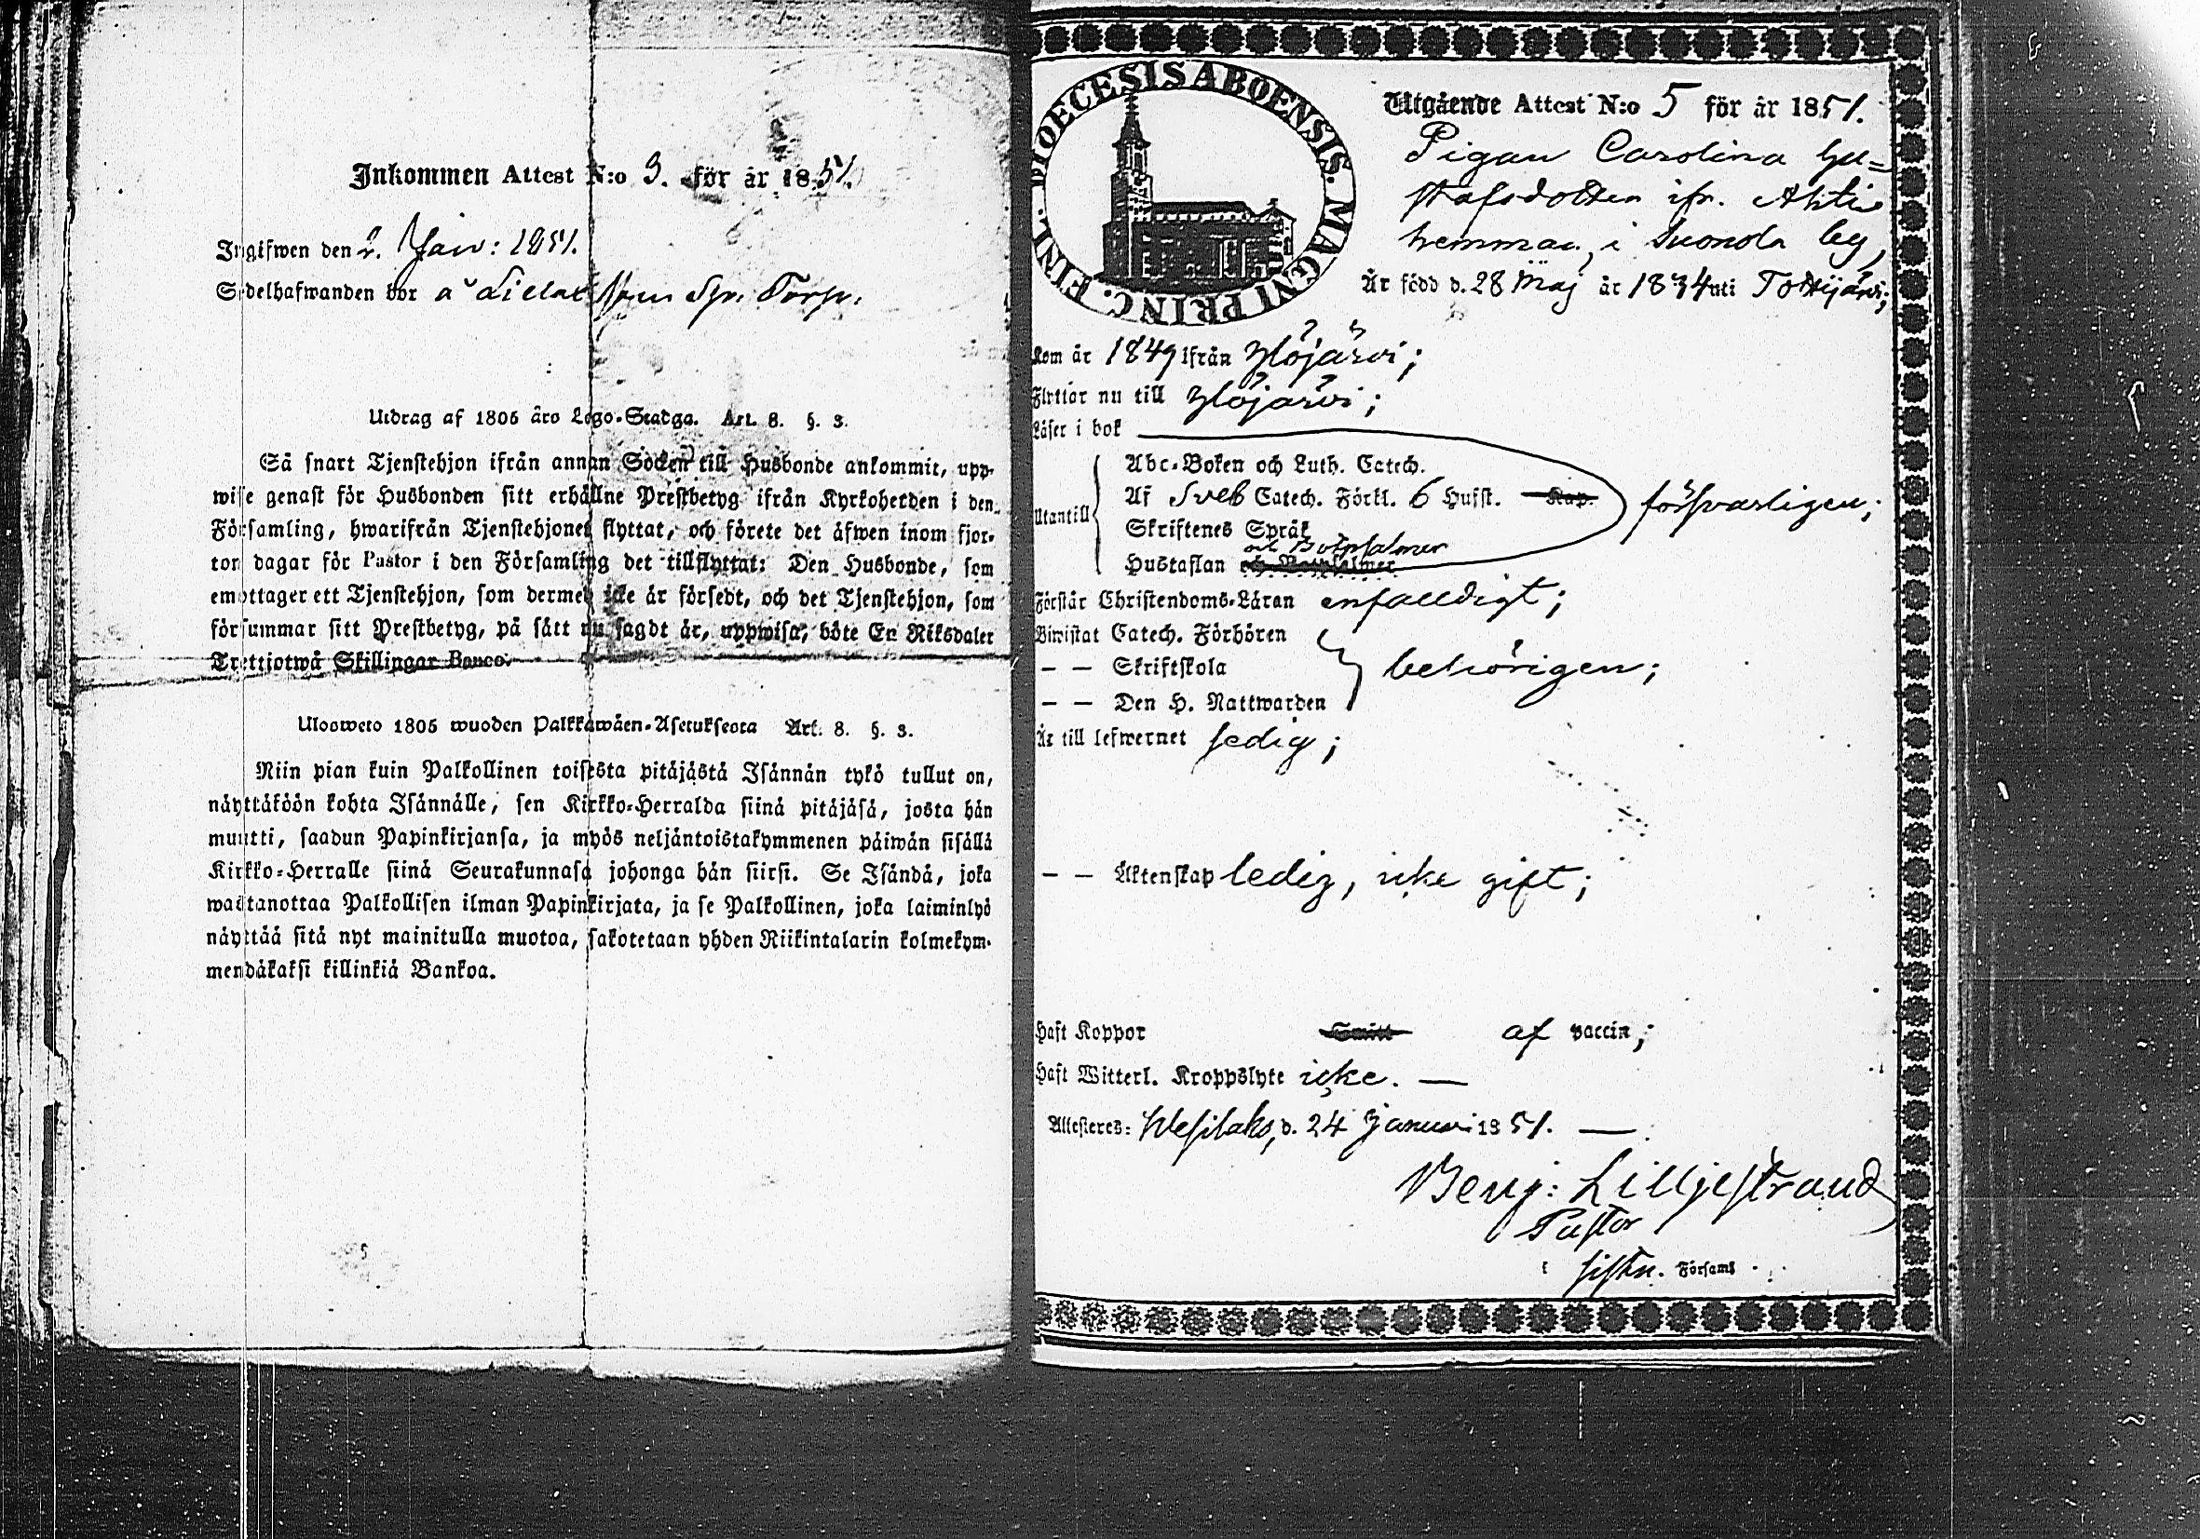 Inkommen Attest N:o 3. för år 1851.
Ingifwen den 2. 1851.
Sedelhafwanden bor å Torp.
Utdrag af 1805 års Lego-Stadga. Art. 8. §. 3.
Så snart Tjenstehjon ifrån annan Socken till Husbonde ankommit, upp-
wise genast för Husbonden sitt erhållne Prestbetyg ifrån Kyrkoherden i den
Församling, hwarifrån Tjenstehjonet flyttat, och förete det äfwen inom fjor-
ton dagar för Pastor i den Församling det tillflyttat: Den Husbonde, som
emottager ett Tjenstehjon, som dermed icke är försedt, och det Tjenstehjon, som
försummar sitt Prestbetyg, på sätt nu sagdt är, uppwisa, böte En Riksdaler
Trettjotwå Skillingar Banco.
Ulosweto 1805 wuoden Palkkawäen-Asetuksesta Art. 8. §. 3.
Niin pian kuin Palkollinen toisesta pitäjästä Isännän tykö tullut on,
näyttäköön kohta Isännälle, sen Kirkko-Herralda siinä pitäjäsä, josta hän
muutti, saadun Papinkirjansa, ja myös neljäntoistakymmenen päiwän sisällä
Kirkko-Herralle siinä Seurakunnasa johonga hän siirsi. Se Isändä, joka
wastanottaa Palkollisen ilman Papinkirjata, ja se Palkollinen, joka laiminlyö
näyttää sitä nyt mainitulla muotoa, sakotetaan yhden Riikintalarin kolmekym-
mendäkaksi killinkiä Bankoa.
DIOECESIS ABOENSIS. MAGNI PRINC. FINL.
Utgående Attest N:o 5 för år 1851.
Pigan Carolina Gu=
stafsdotter ifr. Ahti
hemman, i Suonola by,
Är född d. 28 Maj år 1834 uti Tottijärvi;
Kom år 1849 ifrån Ylöjärvi;
Flyttar nu till Ylöjärvi;
Läser i bok
Abc-Boken och Luth. Catech.
Utantill Af Sveb Catech. Förkl. 6 Hufst. Kap. försvarligen;
Skriftenes Språk
och Botpsalmer
Hustaflan och Botpsalmer
Förstår Christendoms-Läran enfaldigt;
Biwistat Catech. Förhören
— — Skriftskola behörigen;
— — Den H. Nattwarden
Är till lefwernet sedig;
— — Äktenskap ledig, icke gift;
Haft Koppor Smitt af vaccin;
Haft Witterl. Kroppslyte icke. —
Attesteres: Wesilaks, d. 24 Januari 1851. —
Benj: Lilljestrand
Pastor
i Församl